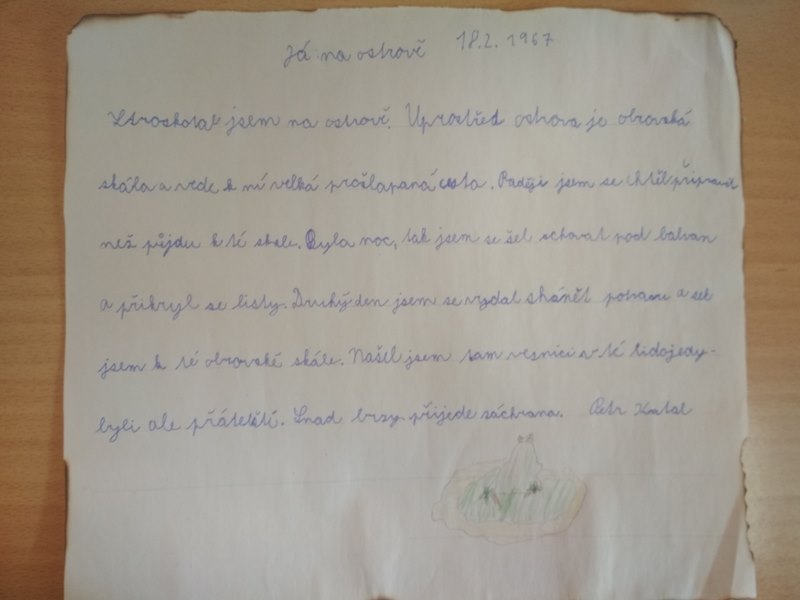 Já na ostrově 18.2. 1967
Ztroskotal jsem na ostrově. Uprostřed ostrova je obrovská
skála a vede k ní velká prošlapaná cesta. Raději jsem se chtěl připravit
než půjdu k té skále. Byla noc, tak jsem se šel schovat pod balvan
a přikryl se listy. Druhý den jsem se vydal shánět potravu a šel
jsem k té obrovské skále. Našel jsem tam vesnici v té lidojedy-
byli ale přátelští. Snad brzy přijede záchrana. Petr